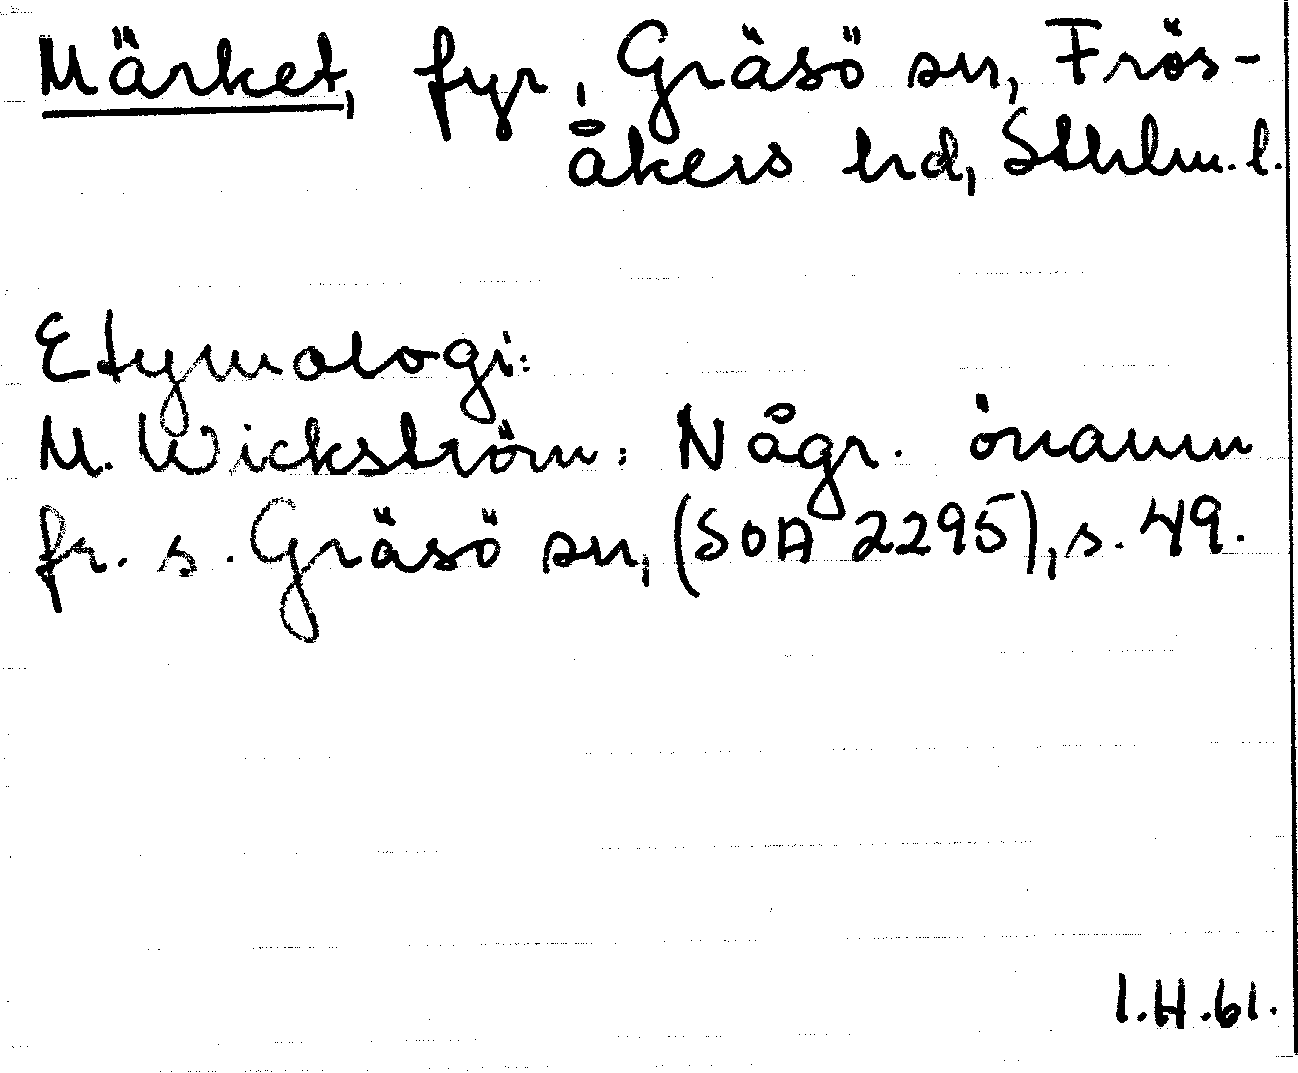 Märket, fyr, Gräsö sn, Frös-
åkers hd, Sthlm. l.
Etymologi:
M. Wickström: Någr. önamn
fr. s. Gräsö sn, (SOA 2295), s. 49.
I.H.61.